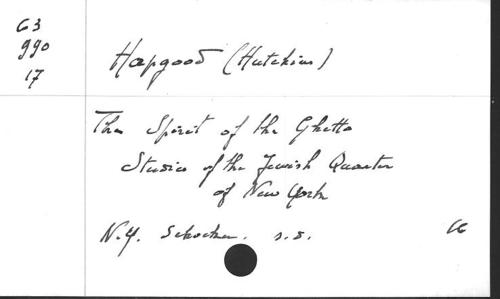 63
990
17
Hapgood (Hutchins)
The Spirit of the Ghetto
Studies of the Jewish Quarter
of New York
N.Y. Schocken. s.d.